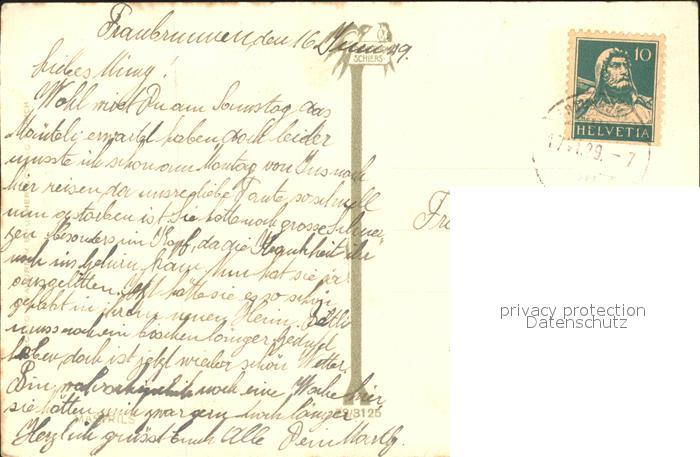 Fraubrunnen, den 16. Juni 29.
SCHIERS
Liebes Mimy!
Wohl wirst Du am Sonntag das
Mänteli erwartet haben, doch leider
musste ich schon am Montag von Ins nach
hier reisen, da unsre liebe Tante so schnell
nun gestorben ist. Sie hatte noch grosse Schmer-
zen besonders im Kopf, da die Krankheit ihr
noch ins Gehirn kam. Nun hat sie ja
ausgelitten. Jetzt hätte sie es so schön
gehabt in ihrem neuen Heim. Bethli
muss noch ein bisschen länger Geduld
haben, doch ist jetzt wieder schön Wetter.
Bin wahrscheinlich noch eine Woche hier
sie hätten mich gern noch länger
Herzlich grüsst Euch Alle Dein
10
HELVETIA
29. - 7
Fr
MASTRILS
3125
privacy protection
Datenschutz